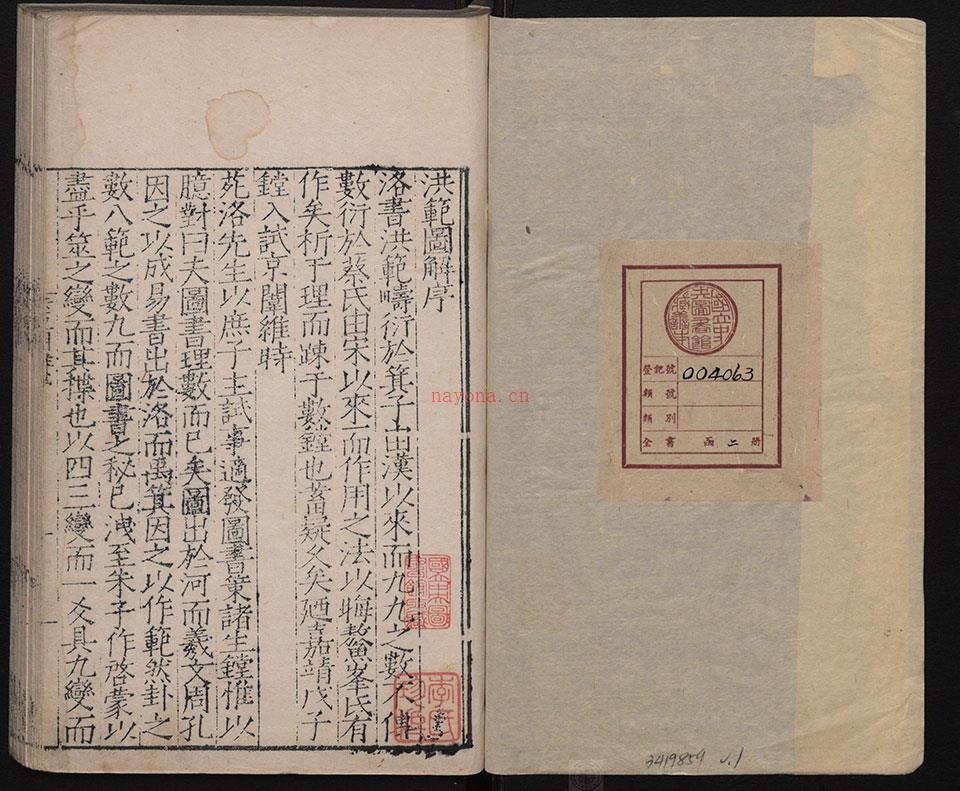 洪範圖解序
洛書洪範疇衍於箕子由漢以來而九九之數不傳
數衍於蔡氏由宋以來而作用之法以晦鰲峯氏有
作矣析于理而踈于數鏜也蓄疑久矣廼嘉靖戊子
鏜入試京闈維時
苑洛先生以庶子主試事適發圖書策諸生鏜惟以
臆對曰夫圖書理數而已矣圖出於河而羲文周孔
因之以成易書出於洛而禹箕因之以作範然卦之
數八範之數九而圖書之秘已洩至朱子作啓蒙以
盡乎筮之變而其揲也以四三變而一爻具九變而
國立中央圖書館收藏
登記號 004063
類號
類別
全書 函 二 册
nayona.cn
3419859 v.1